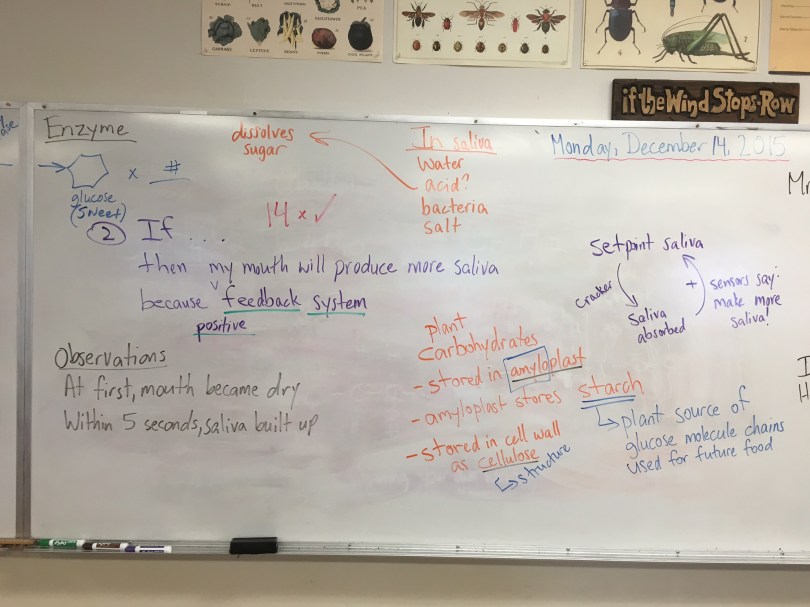 CABBAGE
LETTUCE
if the Wind Stops-Row
Enzyme
x #
glucose
(sweet)
dissolves
sugar
14 x ✓
In saliva
Water
acid?
bacteria
salt
Monday, December 14, 2015
2 If ...
then my mouth will produce more saliva
because feedback system
v
positive
Observations
At first, mouth became dry
Within 5 seconds, saliva built up
Setpoint saliva
cracker
Saliva
absorbed
+
sensors say:
make more
saliva!
plant
Carbohydrates
- stored in amyloplast
- amyloplast stores starch
- stored in cell wall
as cellulose
structure
plant source of
glucose molecule chains
used for future food